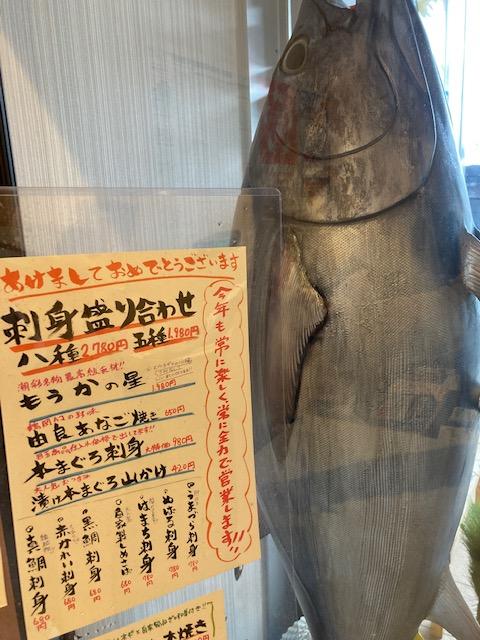 あけましておめでとうございます
刺身盛り合わせ
八種2,780円 五種1,980円
もうかの星
1,480円
由良あなご焼き 650円
本まぐろ刺身 大特価 980円
漬け本まぐろ山かけ 420円
今年も常に楽しく常に全力で営業します!!
うまづら刺身 780円
めばる刺身 780円
はまち刺身 780円
自家製しめさば 680円
黒鯛刺身 680円
赤かれい刺身 680円
真鯛刺身 680円